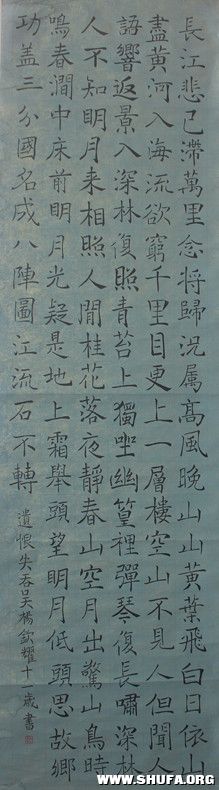 長江悲已滯萬里念將歸況属髙風晚山山黃葉飛白日依山
盡黃河入海流欲窮千里目更上一層樓空山不見人但聞人
語響返景入深林復照青苔上獨坐幽篁裡彈琴復長嘯深林
人不知明月来相照人閒桂花落夜靜春山空月出驚山鳥時
鳴春澗中床前明月光疑是地上霜舉頭望明月低頭思故鄉
功盖三分國名成八陣圖江流石不轉
遺恨失吞吴楊欽耀十一歲書
WWW.SHUFA.ORG